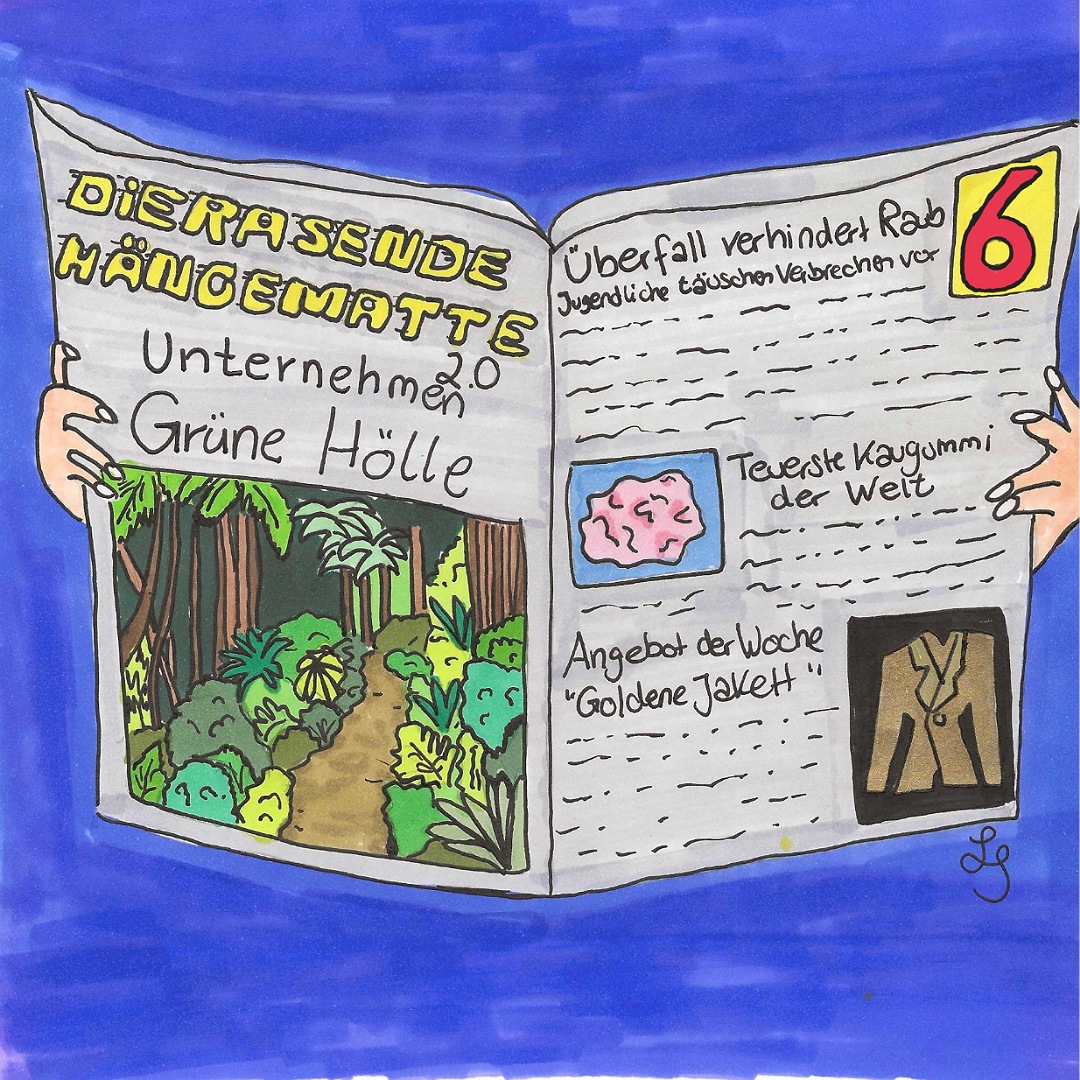 DiE RASENDE
HÄNGEMATTE
Unternehmen 2.0
Grüne Hölle
Überfall verhindert Raub
Jugendliche täuschen Verbrechen vor
6
Teuerste Kaugummi
der Welt
Angebot der Woche
"Goldene Jakett"